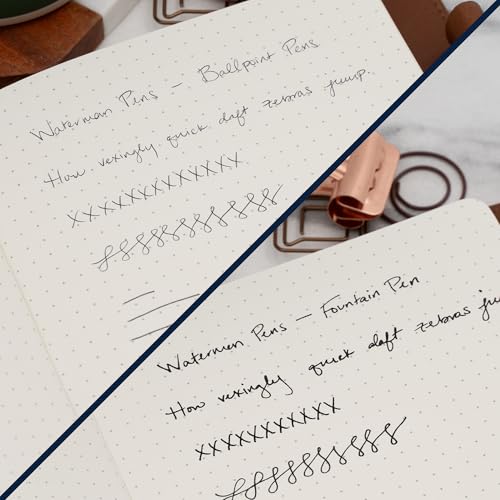 Waterman Pens — Ballpoint Pens
How vexingly quick daft zebras jump.
XXXXXXXXXXXXX
Waterman Pens — Fountain Pen
How vexingly quick daft zebras ju
XXXXXXXXXXX